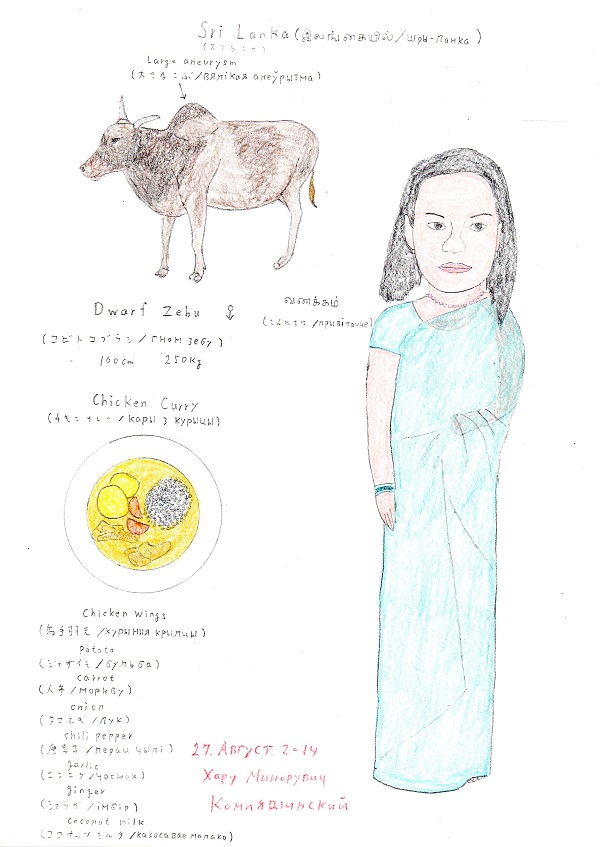 Sri Lanka (இலங்கையில்/Шры-Ланка)
(スリランカ)
Large aneurysm
(大きなこぶ/вялікая анеўрызма)
Dwarf Zebu ♀
(コビトコブウシ/гном зебу)
100cm 250kg
வணக்கம்
(こんにちは/прывітанне)
Chicken Curry
(チキンカレー/кары з курыцы)
Chicken wings
(鳥手羽元/курыныя крылцы)
Potato
(ジャガイモ/бульба)
carrot
(人参/моркву)
onion
(タマネギ/лук)
chili pepper
(唐辛子/перац чылі)
garlic
(ニンニク/часнок)
ginger
(ショウガ/імбір)
coconut milk
(ココナッツミルク/какосавае малако)
27. Август. 2014
Хару Минорувич